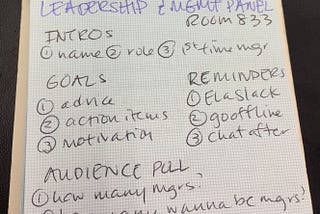 LEADERSHIP & MGMT PANEL
ROOM 833
INTROS
① name ② role ③ 1st time mgr
GOALS
① advice
② action items
③ motivation
REMINDERS
① ELA slack
② go offline
③ chat after
AUDIENCE PULL
① how many mgrs?
wanna be mgrs?